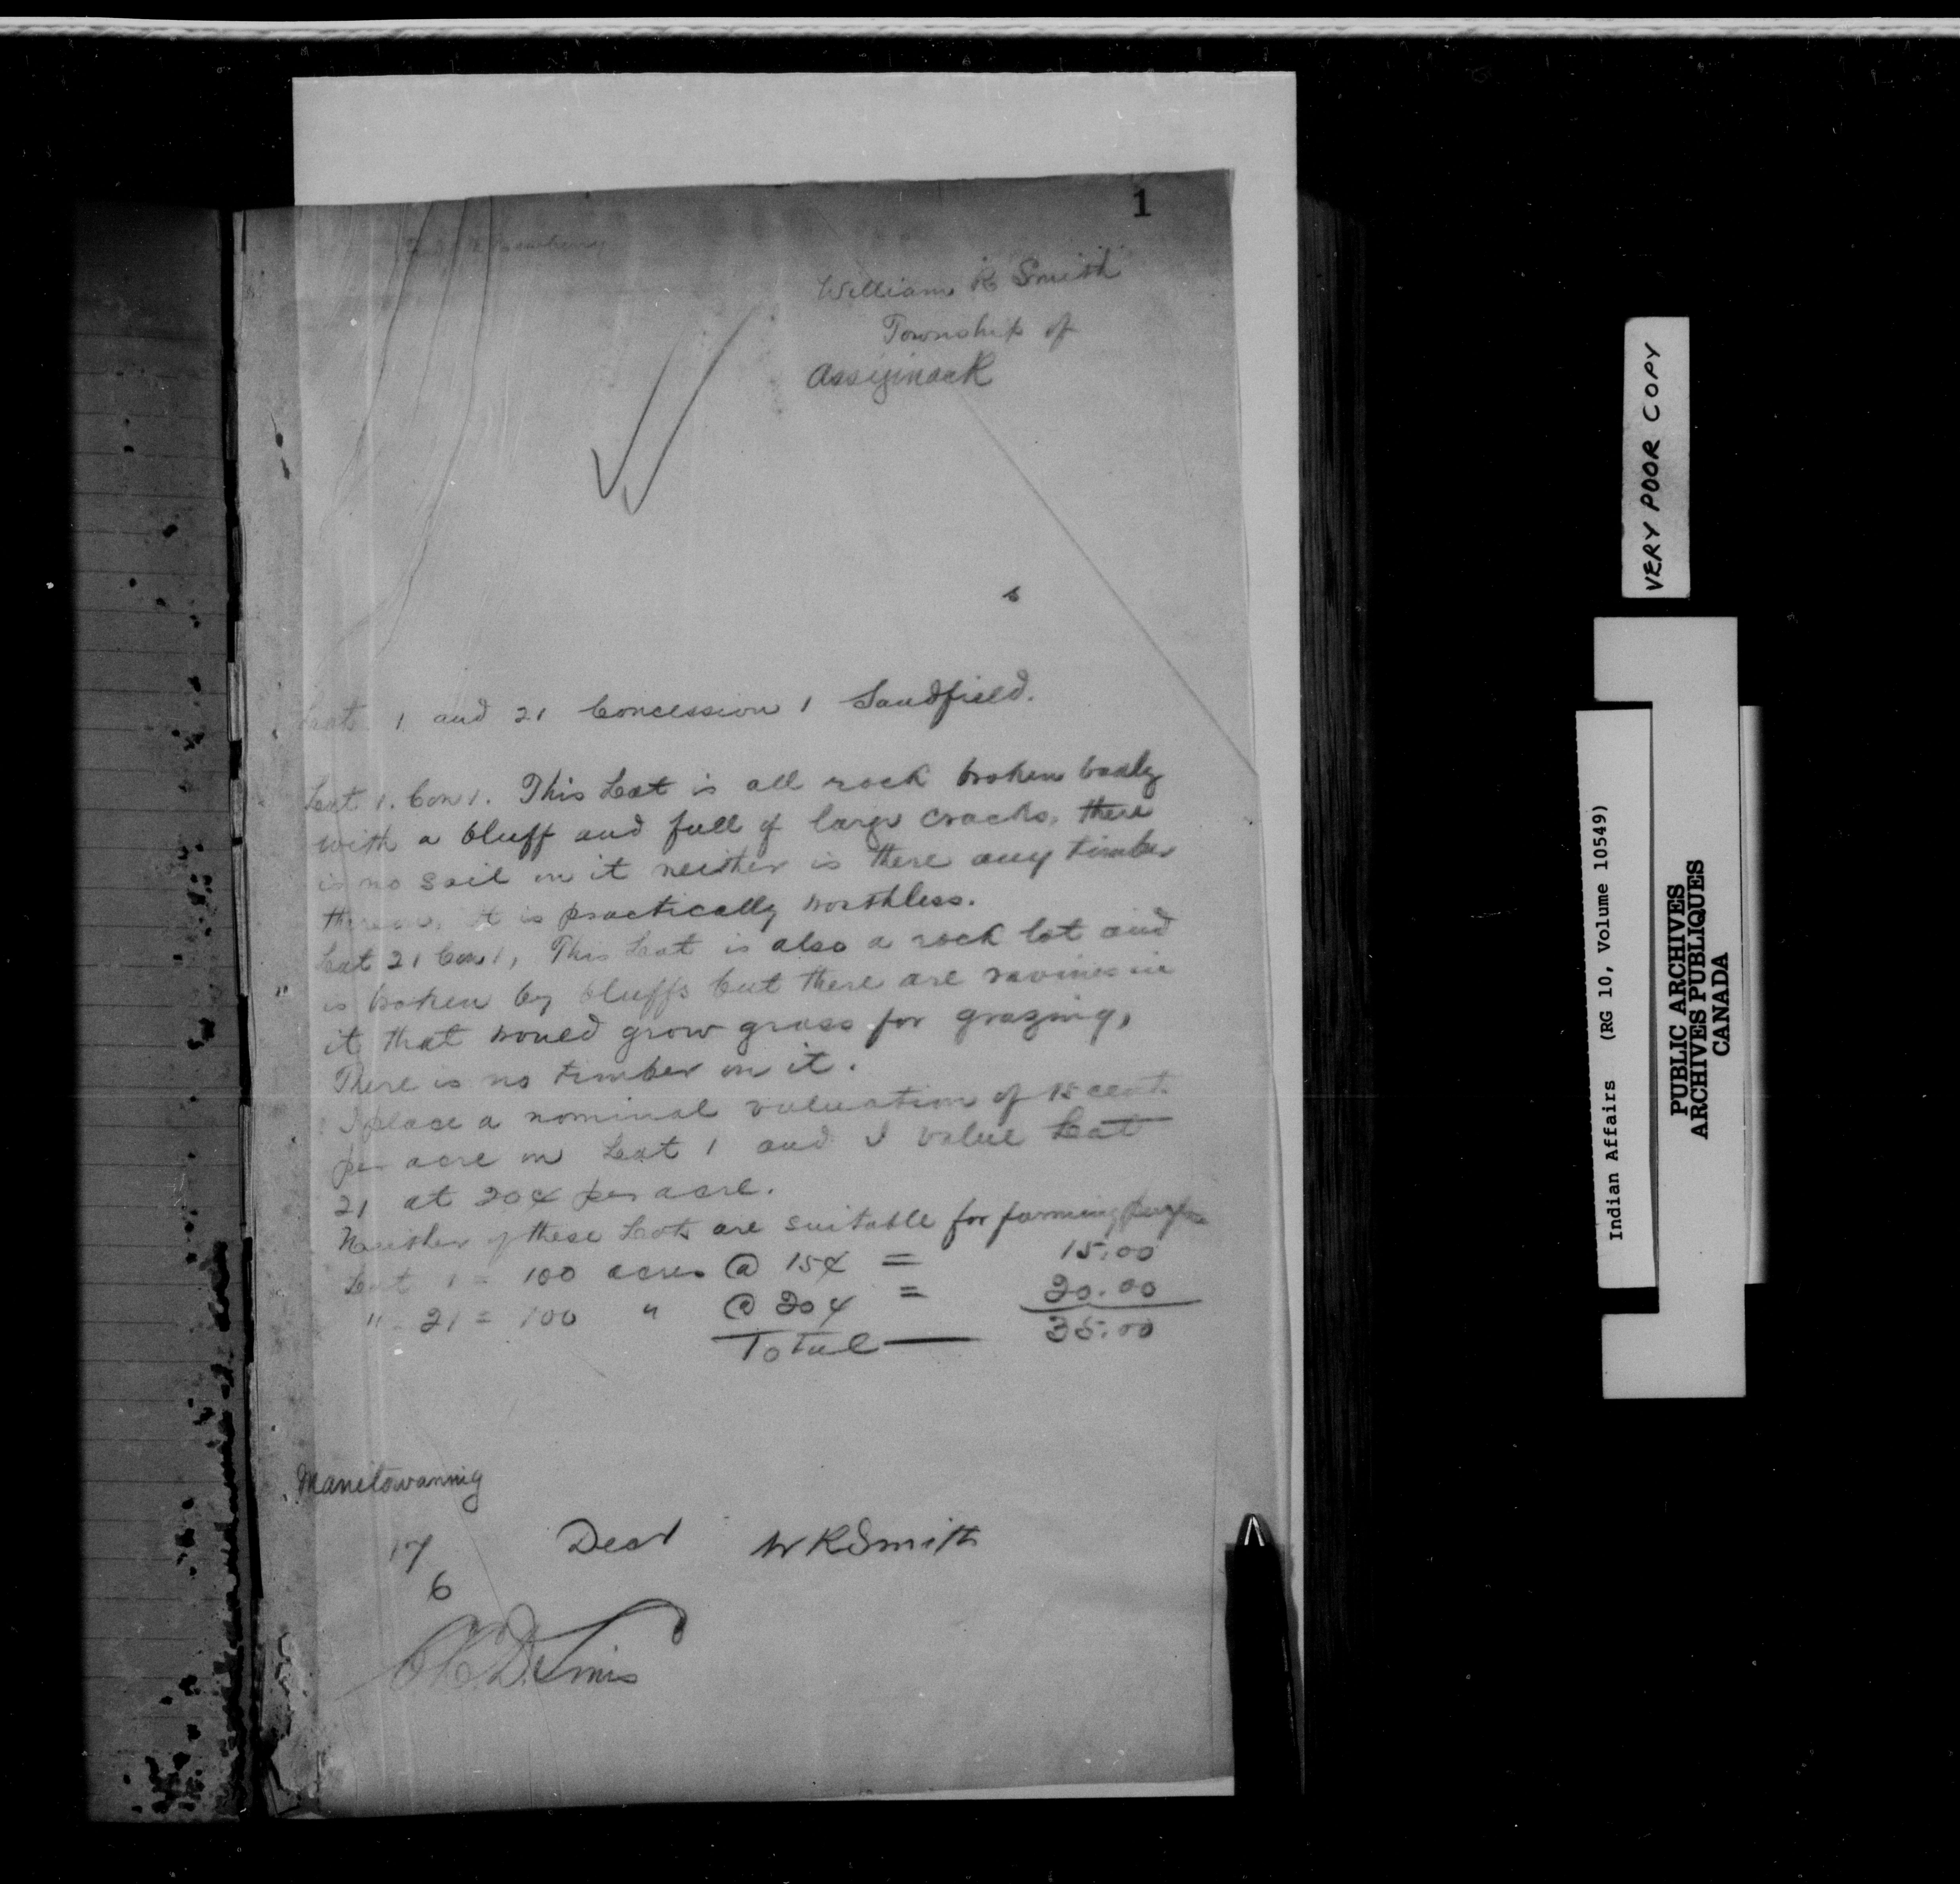 1
William R Smith
Township of
Assiginack
Lots 1 and 21 Concession 1 Sandfield.
Lot 1. Con 1. This Lot is all rock broken badly
with a bluff and full of large cracks, there
is no soil on it neither is there any timber
thereon, it is practically worthless.
Lot 21 Con 1, This Lot is also a rock lot and
is broken by bluffs but there are ravines in
it that would grow grass for grazing,
There is no timber on it.
I place a nominal valuation of 15 cents
per acre on Lot 1 and I value Lot
21 at 20¢ per acre.
Neither of these Lots are suitable for farming
Lot 1 = 100 acres @ 15¢ = 15.00
" 21 = 100 " @ 20¢ = 20.00
Total — 35.00
Manitowaning
17 Dect W R Smith
6
VERY POOR COPY
Indian Affairs (RG 10, Volume 10549)
PUBLIC ARCHIVES
ARCHIVES PUBLIQUES
CANADA